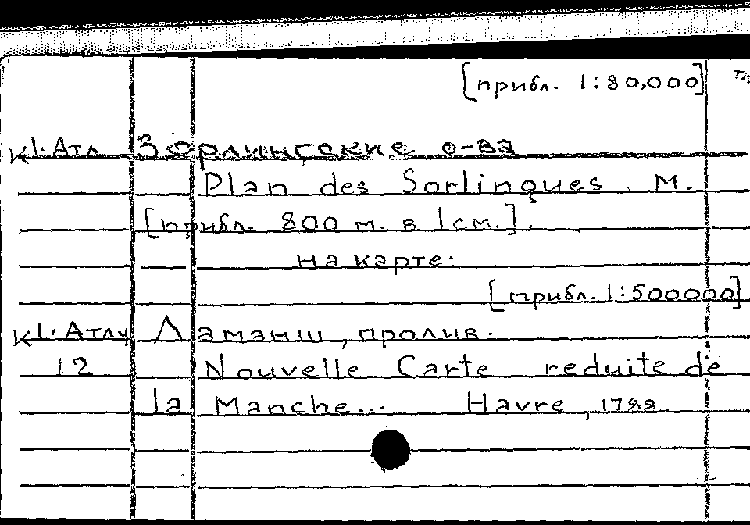 [прибл. 1:80,000]
К1. Атл Зорлингские о-ва
Plan des Sorlingues. М.
[прибл. 800 м. в 1 см.].
На карте:
[прибл. 1:500000]
К1. Атл Ламанш, пролив.
12 Nouvelle Carte reduite de
la Manche... Havre,